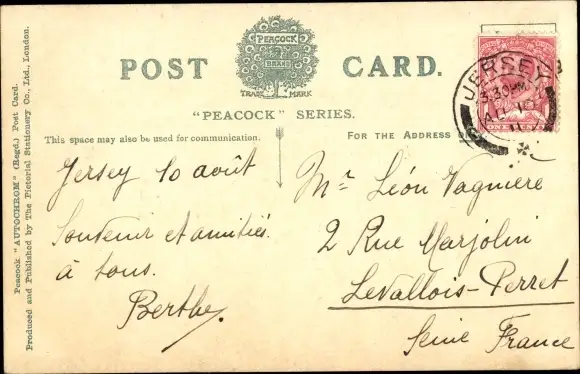 PEACOCK
BRAND
TRADE MARK
POST CARD.
"PEACOCK" SERIES.
This space may also be used for communication.
FOR THE ADDRESS
Peacock "AUTOCHROM" (Regd.) Post Card.
Produced and Published by The Pictorial Stationery Co., Ltd., London.
JERSEY
3.30PM
AU 10
11
ONE PENNY
Jersey 10 août
Souvenir et amitiés
à tous.
Berthe.
Mr Léon Vagniere
2 Rue Marjolin
Levallois-Perret
Seine France